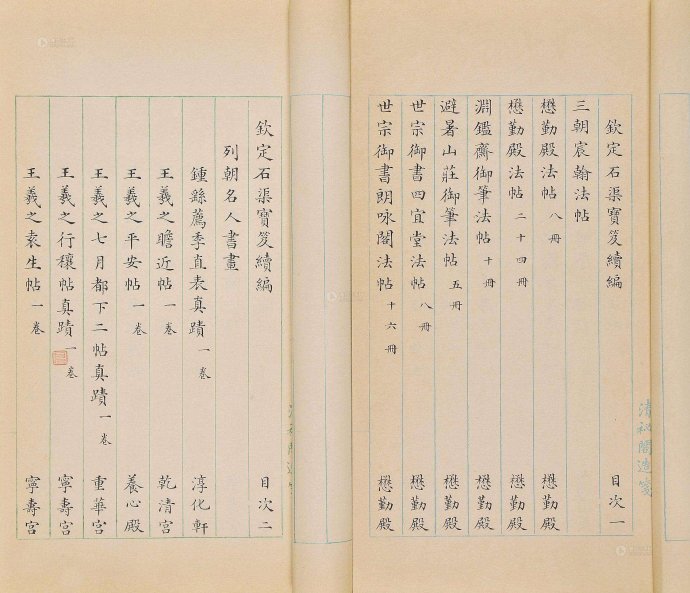 欽定石渠寶笈續編 目次一
三朝宸翰法帖
懋勤殿法帖 八冊 懋勤殿
懋勤殿法帖 二十四冊 懋勤殿
淵鑑齋御筆法帖 十冊 懋勤殿
避暑山莊御筆法帖 五冊 懋勤殿
世宗御書四宜堂法帖 八冊 懋勤殿
世宗御書朗咏閣法帖 十六冊 懋勤殿
清祕閣造箋
欽定石渠寶笈續編 目次二
列朝名人書畫
鍾繇薦季直表真蹟 一卷 淳化軒
王羲之瞻近帖 一卷 乾清宮
王羲之平安帖 一卷 養心殿
王羲之七月都下二帖真蹟 一卷 重華宮
王羲之行穰帖真蹟 一卷 寧壽宮
王羲之袁生帖 一卷 寧壽宮